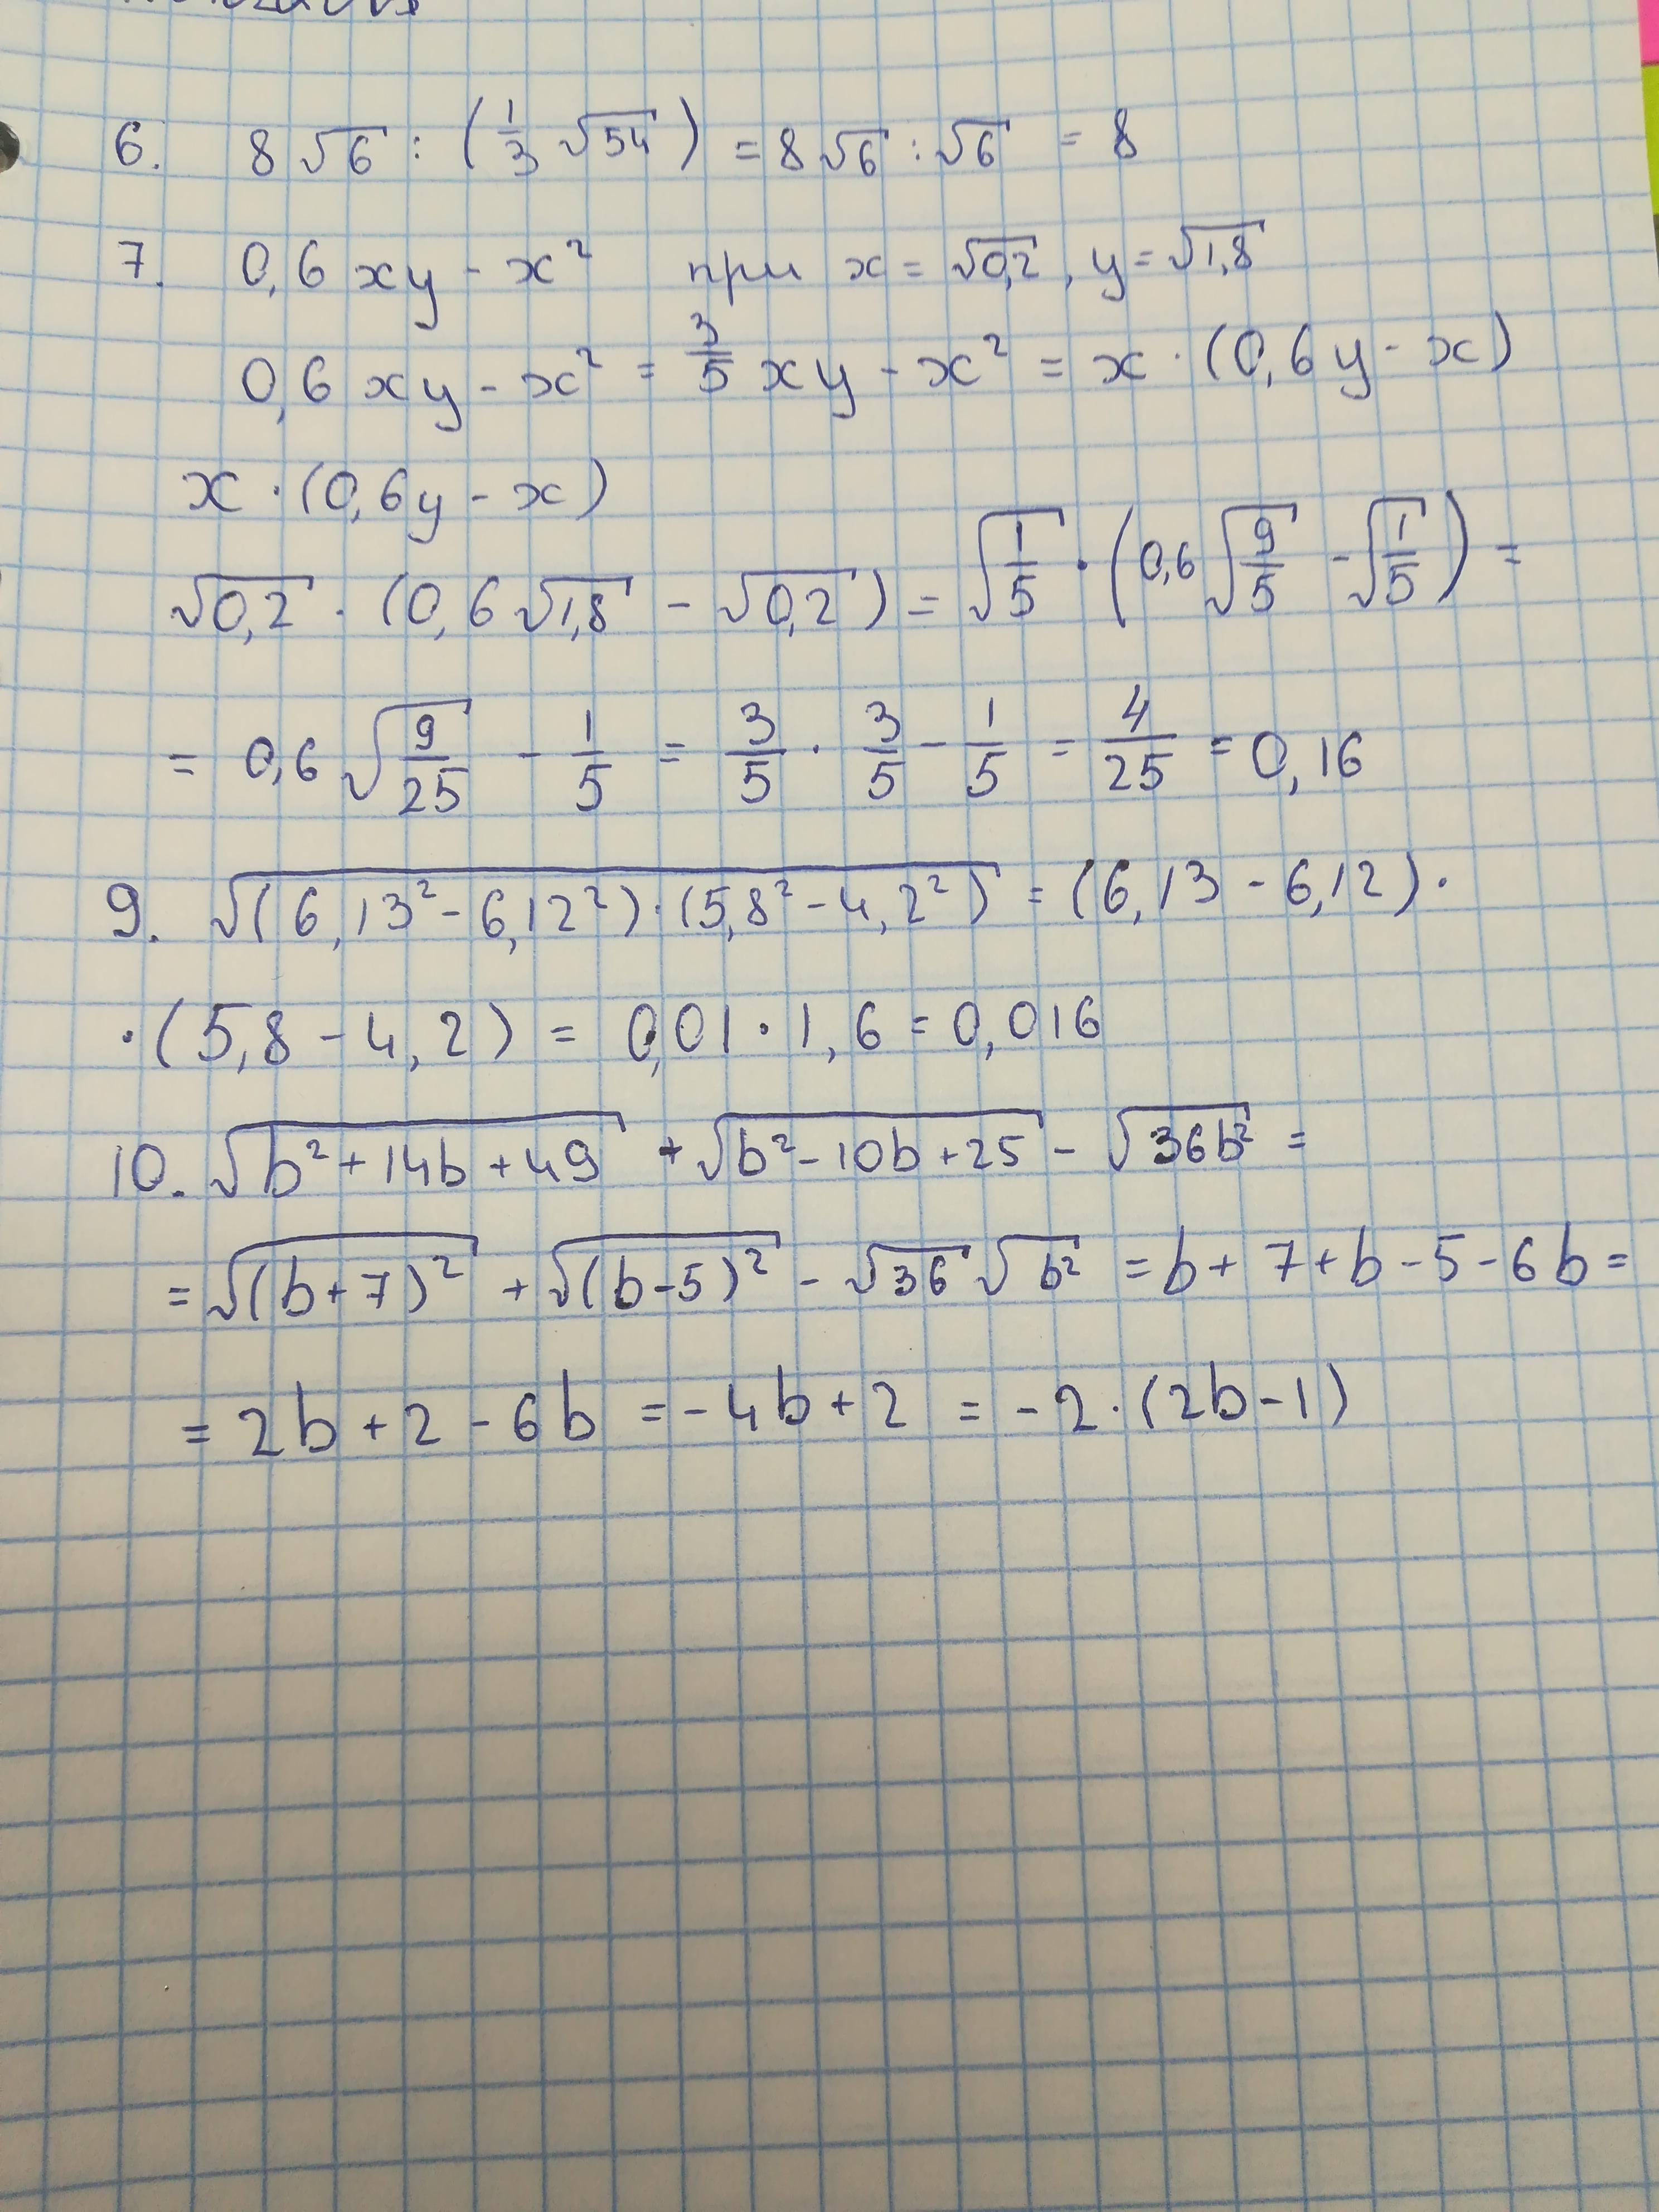 6. 8√6 : (1/3 √54) = 8√6 : √6 = 8
7. 0,6xy - x² при x = √0,2, y = √1,8
0,6xy - x² = 3/5 xy - x² = x · (0,6y - x)
x · (0,6y - x)
√0,2 · (0,6√1,8 - √0,2) = √(1/5) · (0,6√(9/5) - √(1/5)) =
= 0,6√(9/25) - 1/5 = 3/5 · 3/5 - 1/5 = 4/25 = 0,16
9. √((6,13² - 6,12²) · (5,8² - 4,2²)) = (6,13 - 6,12) ·
· (5,8 - 4,2) = 0,01 · 1,6 = 0,016
10. √(b² + 14b + 49) + √(b² - 10b + 25) - √(36b²) =
= √((b + 7)²) + √((b - 5)²) - √36 √b² = b + 7 + b - 5 - 6b =
= 2b + 2 - 6b = -4b + 2 = -2 · (2b - 1)